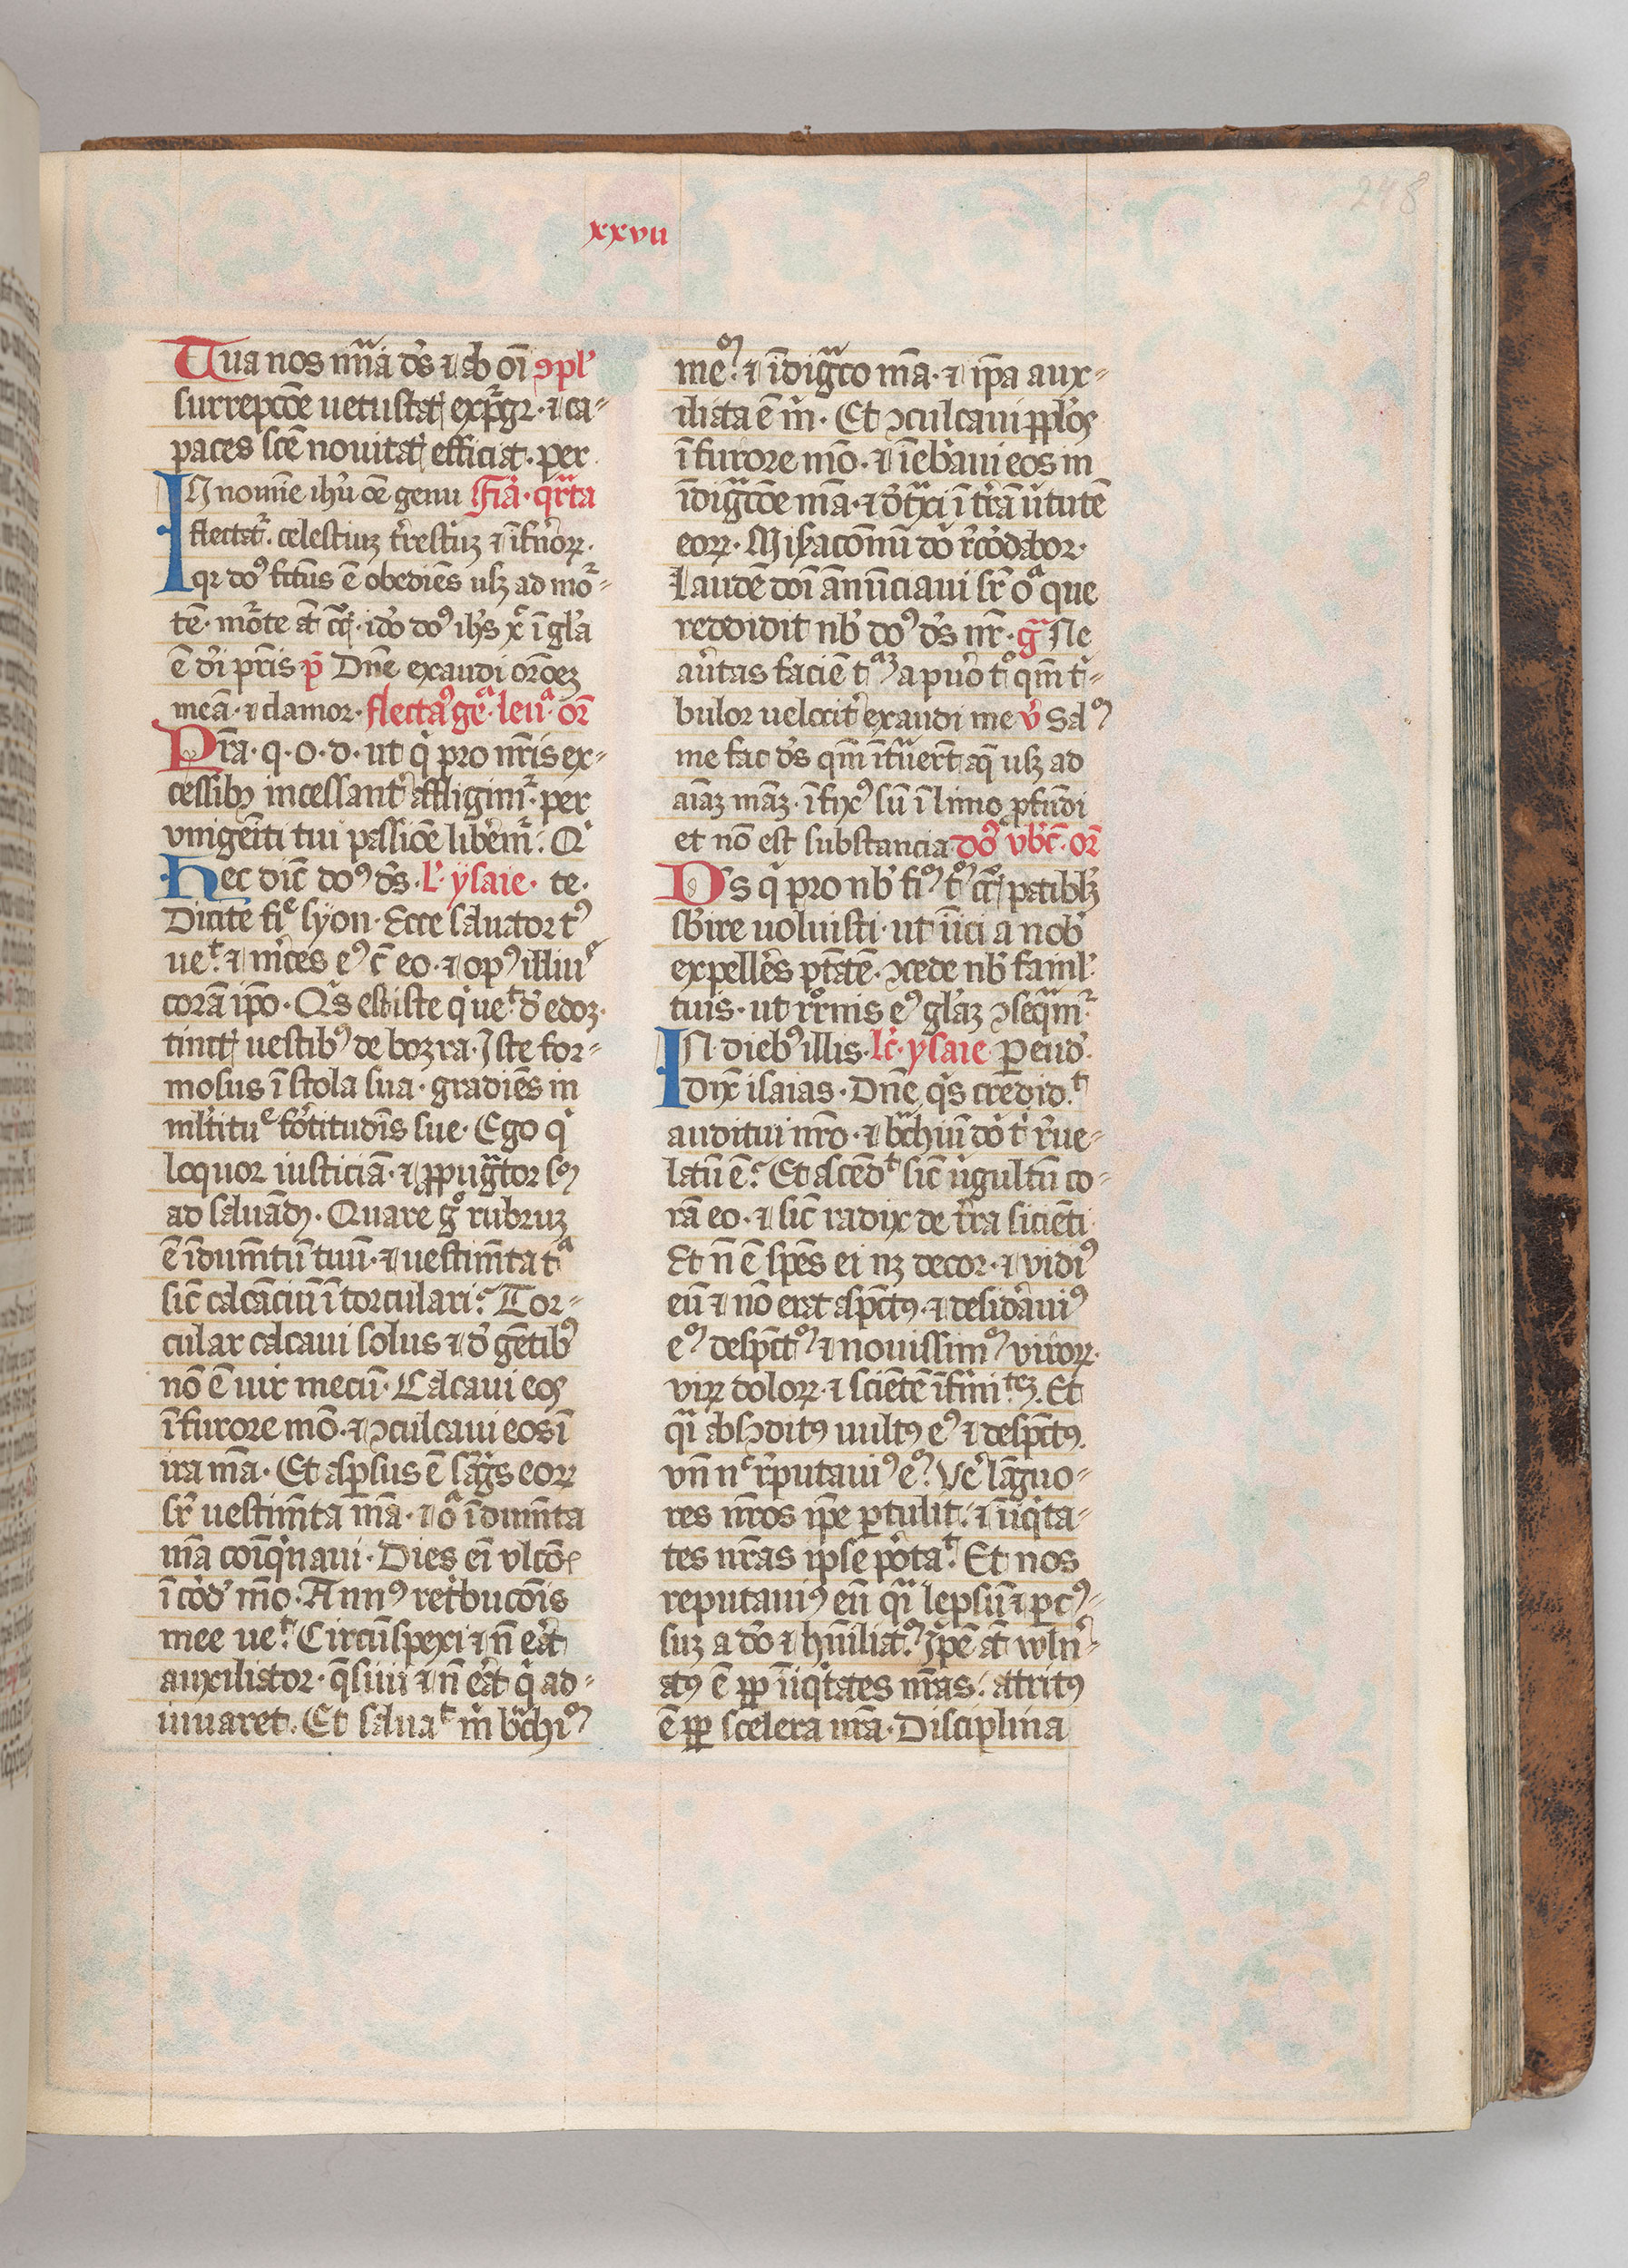 xxvii
248
Tua nos mīa ds̄ ⁊ ab oī ɔpl'
surrepcōe uetustat expr̄gꝛ · ⁊ ca-
paces scē nouitat efficiat · per
IN nomīe ihū oē genu Fīa · qrta
flectat᷑ · celestiuꝫ tr̄restiuꝫ ⁊ īfnoꝝ ·
qꝛ doꝰ fctūs ē obediēs usꝫ ad mo᷑-
tē · morte āt cͨ · idō doꝰ ihs xͦ ī gl'a
ē dī pr̄is p̄ Dn̄e exaudi orōeꝫ
meā · ⁊ clamor · flectaꝰ gēᵃ · leuᵃ · oꝛ̄
Pr̄a · q · o · d · ut q pro nr̄is ex-
cessibꝫ incessant᷑ affligim᷑ · per
vnigeīti tui passiōe liberem᷑ : Q
Hec dic̄ doꝰ ds̄ · L' · ysaie · te ·
Dicite fiᵉ syon · Ecce saluator tꝰ
ueᵗ · ⁊ m̄ces eꝰ c̄ eo · ⁊ opꝰ illiuꝰ
corā ip̄o · Qs est iste q ueᵗ · d' edoꝫ ·
tinct uestibꝰ de bozra · Iste for-
mosus ī stola sua · gradiēs in
ml'tituᵉ fōrtitudīs sue · Ego q
loquor iusticiā · ⁊ ꝓpugᵃtor sꝫ
ad saluādꝫ · Quare gͦ rubruꝫ
ē īdumītū tuū · ⁊ uestimīta tᵃ
sic̄ calcāciū ī torculari · Tor-
cular calcaui solus ⁊ d' gētibꝰ
nō ē uir mecū · Calcaui eos
ī furore mō · ⁊ ɔculcaui eos ī
ira mā · Et aspersus ē sāgs eoꝝ
sr̄ uestimīta mā · ⁊ oᵃ īdumīta
mā coīqnaui · Dies eī vlcōe
ī cord' mō · Annꝰ ret'bucōis
mee ueᵗ · Circūspexi ⁊ n̄ erat
auxiliator · qsiui ⁊ n̄ erat q ad-
iuuaret · Et saluaᵗ m bᵃchiꝰ
meꝰ · ⁊ īdigᵃco mā · ⁊ ip̄a aux-
iliata ē m · Et ɔculcaui ppl'os
ī furore mō · ⁊ īeb'aui eos in
īdigᵃcōe mā · ⁊ d'txᵃi ī tr̄ā ūtutē
eoꝝ · Mis'acōnū dō r̄cōdabor ·
Laudē doī ānūciaui sr̄ oᵃ que
reddidit nb' doꝰ ds̄ nr̄ · gᵃ Ne
auertas faciē tᵃꝫ a puo tͦ qm̄ t'-
bulor uelocit' exaudi me v̄ Salꝰ
me fac ds̄ qm̄ ītᵃuert̄ aq usꝫ ad
aīaꝫ māꝫ · ī fixꝰ sū ī limo ꝓfūdi
et nō est substancia doꝰ vbc̄ · oꝛ̄
Ds q pro nb' fiꝰ tꝰ cͨ patibl'ꝫ
sb'ire uoluisti · ut iīci a nob'
expelleīs pt̄atē · ɔcede nb' faml'
tuis · ut rr̄mis eꝰ gl'aꝫ ɔseqᵃm᷑
IN diebꝰ illis · Lc̄ · ysaie · per eud' ·
dix̄ isaias · Dn̄e qs credidᵗ
auditui nr̄o · ⁊ bᵃchiū dō t' r̄ue-
latū ē · Et ascēdᵗ sic̄ ūgultū co-
rā eo · ⁊ sic̄ radix de tr̄ra sicieti ·
Et n̄ ē spēs ei nꝫ decor · ⁊ vidiꝰ
eū ⁊ nō erat aspc̄tꝰ · ⁊ desid'auiꝰ
eꝰ despc̄tꝰ ⁊ nouissimꝰ viroꝝ ·
viꝝ doloꝝ · ⁊ sciētē īfmiᵗᵉꝫ · Et
qᵃi absɔditꝰ uultꝰ eꝰ ⁊ despc̄tꝰ ·
vn̄ nᵉ r̄putauiꝰ eꝰ · Ve'lāguo-
res nr̄os ip̄e ꝑtulit : ⁊ iīqta-
tes nr̄as ipse portaᵗ · Et nos
reputauiꝰ eū qᵃi lepsū ⁊ ꝑcꝰ-
suꝫ a dō ⁊ hūiliatꝰ · Ip̄e āt vuln'-
atꝰ ē ꝓp iīqtates nr̄as : attritꝰ
ē ꝓp scelera nr̄a · Disciplina